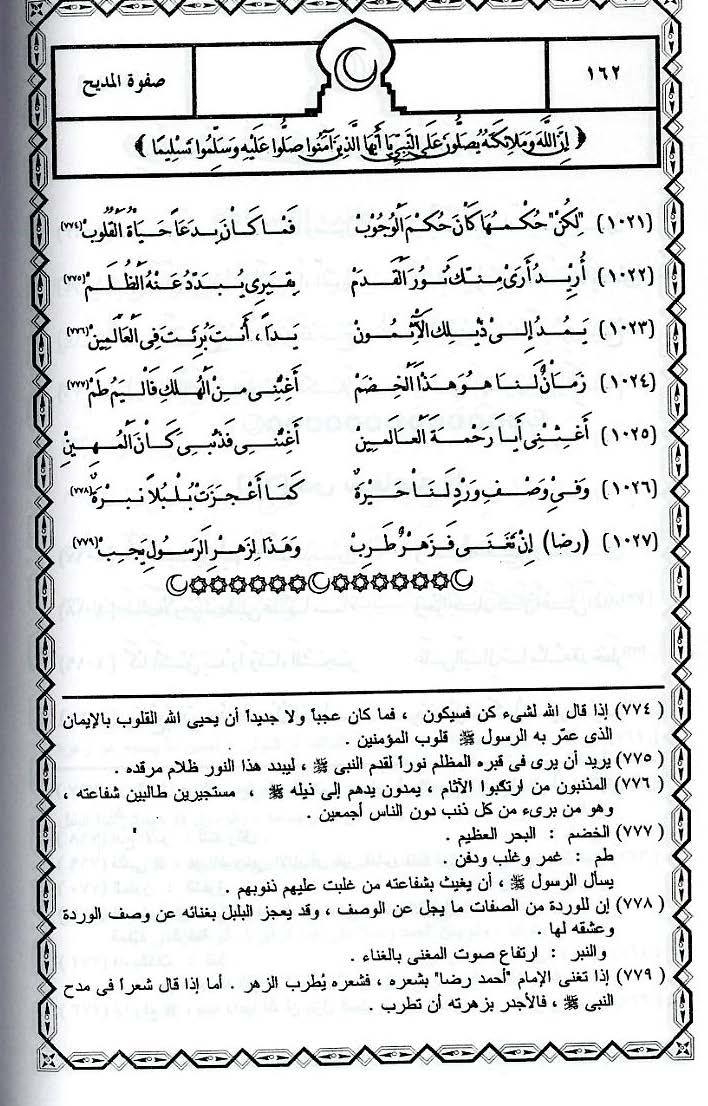 ١٦٢
صفوة المديح
﴿ إِنَّ اللَّهَ وَمَلَائِكَتَهُ يُصَلُّونَ عَلَى النَّبِيِّ يَا أَيُّهَا الَّذِينَ آمَنُوا صَلُّوا عَلَيْهِ وَسَلِّمُوا تَسْلِيمًا ﴾
(١٠٢١) "لِكُنْ" حُكْمُهَا كَانَ حُكْمَ الْوُجُوبْ فَمَا كَانَ بِدْعَاً حَيَاةُ الْقُلُوبْ (٧٧٤)
(١٠٢٢) أُرِيْدُ أَرَىْ مِنْكَ نُورَ الْقَدَمْ بِقَبْرِي يُبَدَّدُ عَنْهُ الظُّلَمْ (٧٧٥)
(١٠٢٣) يَمُدُّ إِلىْ ذَيْلِكَ الْآثِمُونْ يَداً، أَنْتَ بُرِئْتَ فِي الْعَالَمِيْنْ (٧٧٦)
(١٠٢٤) زَمَانٌ لَنَا هُوَ هَذَا الْخِضَمْ أَغِثْنِى مِنْ الْهُلْكِ فَالْيَمُّ طَمْ (٧٧٧)
(١٠٢٥) أَغِثْنِي أَيَا رَحْمَةَ الْعَالَمِيْنْ أَغِثْنِى فَذَنْبِى كَانَ الْمُهِيْنْ
(١٠٢٦) وَفِيْ وَصْفِ وَرْدٍ لَنَا حَيْرَةٌ كَمَا أَعْجَزَتْ بُلْبُلاً نَبْرَةٌ (٧٧٨)
(١٠٢٧) (رضا) إِنْ تَغَنَّى فَزَهْرٌ طَرِبْ وَهَذَا لِزَهْرِ الرَّسُولِ يَجِبْ (٧٧٩)
( ٧٧٤) إذا قال الله لشىء كن فسيكون ، فما كان عجباً ولا جديداً أن يحيى الله القلوب بالإيمان
الذى عمّر به الرسول ﷺ قلوب المؤمنين .
( ٧٧٥) يريد أن يرى فى قبره المظلم نوراً لقدم النبى ﷺ ، ليبدد هذا النور ظلام مرقده .
( ٧٧٦) المذنبون من ارتكبوا الآثام ، يمدون يدهم إلى ذيله ﷺ ، مستجيرين طالبين شفاعته ،
وهو من برىء من كل ذنب دون الناس أجمعين .
( ٧٧٧) الخضم : البحر العظيم .
طم : غمر وغلب ودفن .
يسأل الرسول ﷺ ، أن يغيث بشفاعته من غلبت عليهم ذنوبهم .
( ٧٧٨) إن للوردة من الصفات ما يجل عن الوصف ، وقد يعجز البلبل بغنائه عن وصف الوردة
وعشقه لها .
والنبر : ارتفاع صوت المغنى بالغناء .
( ٧٧٩) إذا تغنى الإمام "أحمد رضا" بشعره ، فشعره يُطرب الزهر . أما إذا قال شعراً فى مدح
النبى ﷺ ، فالأجدر بزهرته أن تطرب .